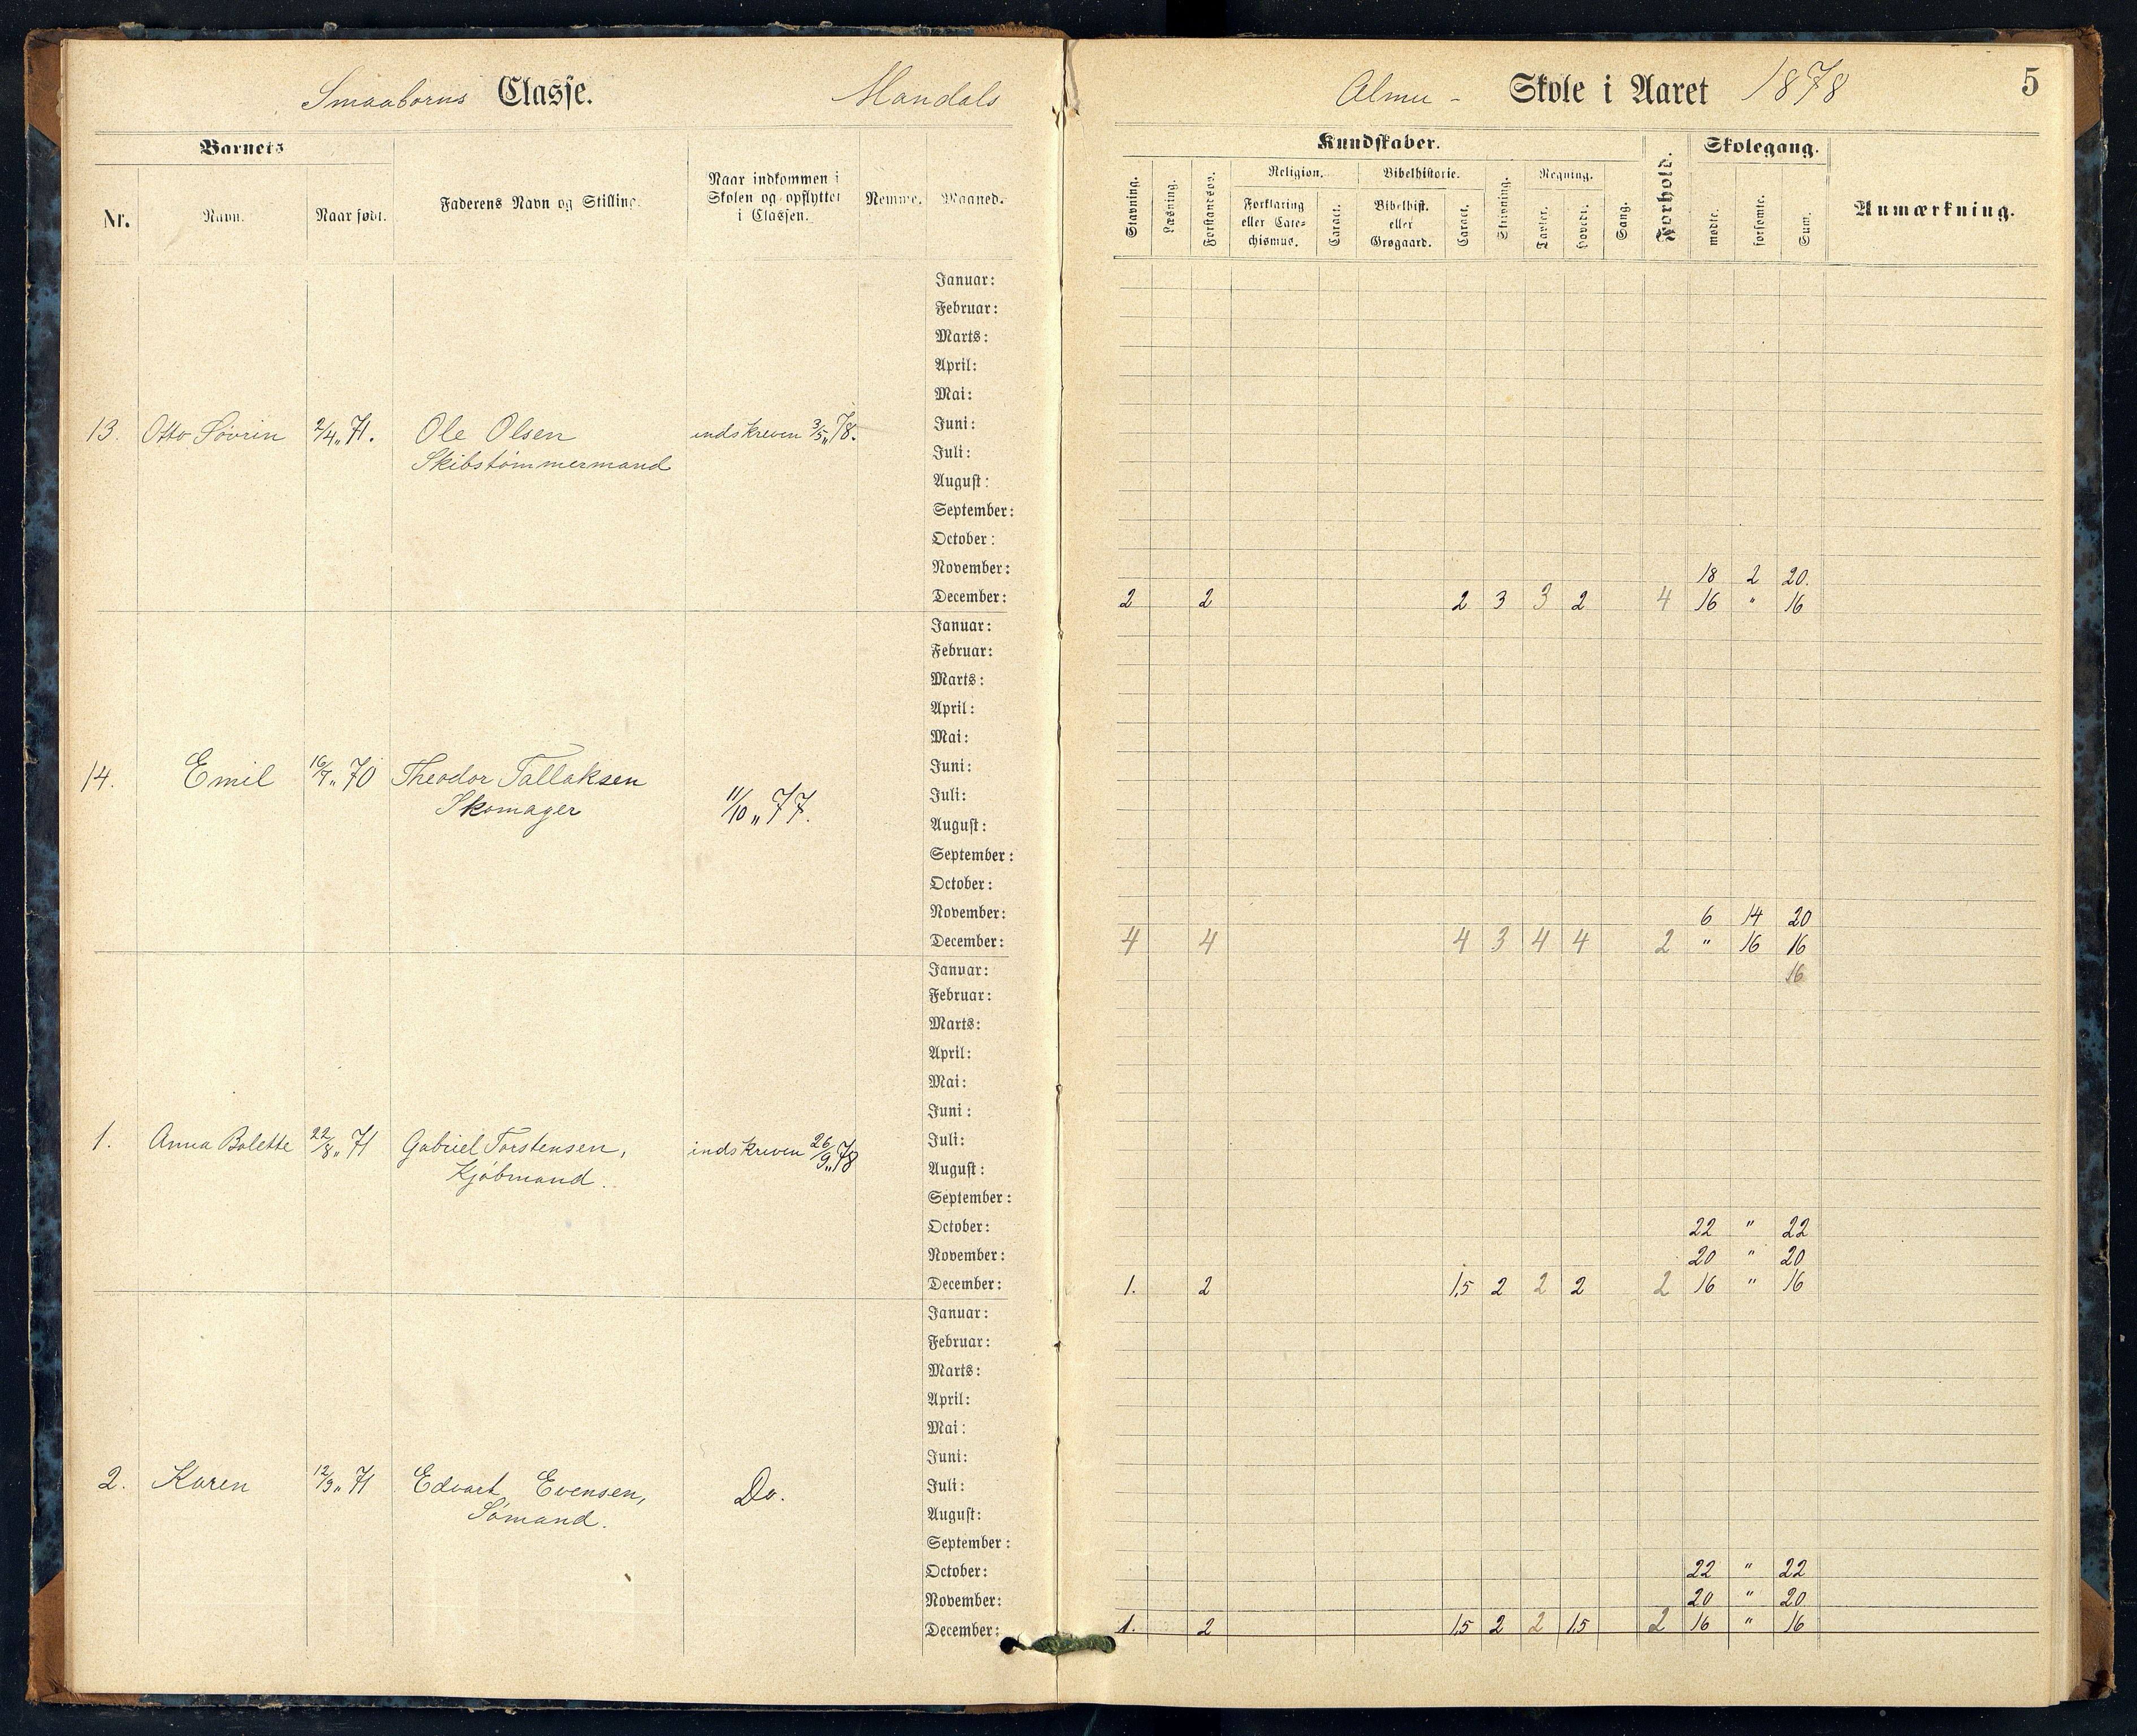 Smaaborns Classe. Mandals
Almu - Skole i Aaret 1878 5
Barnets
Nr. Navn. Naar født. Faderens Navn og Stilling. Naar indkommen i Skolen og opflyttet i Classen. Nemme. Maaned.
Kundskaber. Forhold. Skolegang. Anmærkning.
Stavning. Læsning. Forstandsøv. Religion. Bibelhistorie. Skrivning. Regning. Sang. mødte. forsømte. Sum.
Forklaring eller Catechismus. Caract. Bibelhist. eller Grøgaard. Caract. Tavler. Hovedr.
Januar:
Februar:
Marts:
April:
Mai:
13. Otto Søvrin 2/4 „ 71. Ole Olsen indskreven 3/5 „ 78. Juni:
Skibstømmermand Juli:
August:
September:
October:
November: 18 2 20.
December: 2 2 2 3 3 2 4 16 " 16
Januar:
Februar:
Marts:
April:
Mai:
14. Emil 16/7 „ 70 Theodor Tallaksen Juni:
Skomager 11/10 „ 77. Juli:
August:
September:
October:
November: 6 14 20
December: 4 4 4 3 4 4 2 " 16 16
Januar: 16
Februar:
Marts:
April:
Mai:
Juni:
1. Anna Bolette 22/8 „ 71 Gabriel Torstensen, indskreven 26/9 „ 78 Juli:
Kjøbmand. August:
September:
October: 22 " 22
November: 20 " 20
December: 1. 2 1,5 2 2 2 2 16 " 16
Januar:
Februar:
Marts:
April:
Mai:
Juni:
2. Karen 12/9 „ 71 Edvart Evensen, Do. Juli:
Sømand. August:
September:
October: 22 " 22
November: 20 " 20
December: 1. 2 1,5 2 2 1,5 2 16 " 16